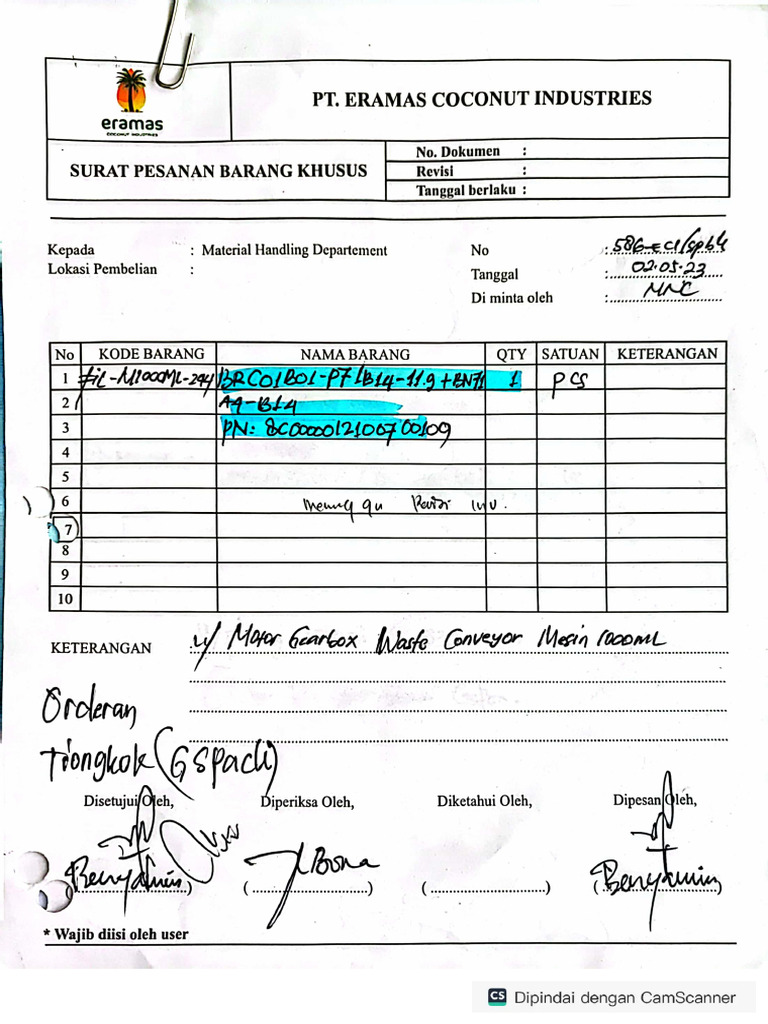 eramas
COCONUT INDUSTRIES
PT. ERAMAS COCONUT INDUSTRIES
SURAT PESANAN BARANG KHUSUS
No. Dokumen :
Revisi :
Tanggal berlaku :
Kepada : Material Handling Departement
Lokasi Pembelian :
No : 586-ECI/spbk
Tanggal : 02.05.23
Di minta oleh : MNC
No KODE BARANG NAMA BARANG QTY SATUAN KETERANGAN
1 fil-M1000ML-294 BRC01B01-P71B14-11.9+BN71 1 pcs
2 A4-B14
3 PN: 8C0000012100700109
4
5
6 menunggu Revisi inv.
7
8
9
10
KETERANGAN : u/ Motor Gearbox Waste Conveyor Mesin 1000ML
Orderan
Tiongkok (GSpack)
Disetujui Oleh, Diperiksa Oleh, Diketahui Oleh, Dipesan Oleh,
Benyamin Bona Benyamin
* Wajib diisi oleh user
CS Dipindai dengan CamScanner